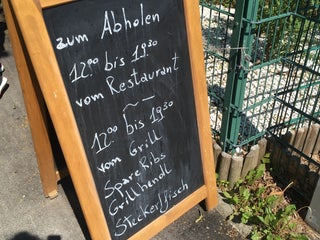 zum Abholen
12⁰⁰ bis 19³⁰
vom Restaurant
~
12⁰⁰ bis 19³⁰
vom Grill
Spare Ribs
Grillhendl
Steckerlfisch